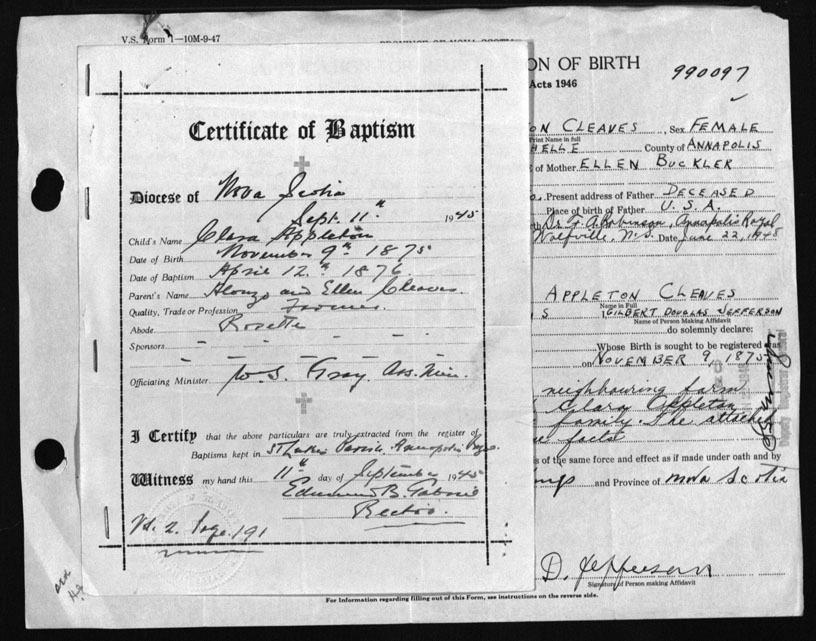 V.S. Form 1—10M-9-47
PROVINCE OF NOVA SCOTIA
ON OF BIRTH
Acts 1946
990097
ON CLEAVES, Sex FEMALE
Print Name in full
HELLE County of ANNAPOLIS
of Mother ELLEN BUCKLER
Present address of Father DECEASED
Place of birth of Father U.S.A.
Annapolis Royal
Wolfville, N.S. Date June 22, 1948
APPLETON CLEAVES
Name in Full
S GILBERT DOUGLAS JEFFERSON
Name of Person Making Affidavit
do solemnly declare:
Whose Birth is sought to be registered was
on NOVEMBER 9, 1875
neighbouring farm
Clara Appleton
family. She attached
facts
s of the same force and effect as if made under oath and by
and Province of Nova Scotia
D. Jefferson
Signature of Person making Affidavit
For Information regarding filling out of this Form, see instructions on the reverse side.
Certificate of Baptism
Diocese of Nova Scotia
Sept. 11th 1945
Child's Name Clara Appleton
Date of Birth November 9th 1875
Date of Baptism April 12th 1876
Parent's Name Alonzo and Ellen Cleaves.
Quality, Trade or Profession Farmer.
Abode Rosette
Sponsors
Officiating Minister W. S. Gray. Ass. Min.
I Certify that the above particulars are truly extracted from the register of
Baptisms kept in St Lukes Parish Annapolis Royal.
Witness my hand this 11th day of September 1945
Edmund B.
Rector.
Vol. 2. Page 191